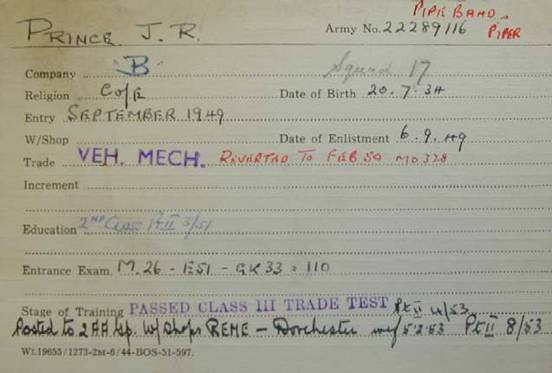 PIPE BAND.
PRINCE J. R. Army No. 22289116 PIPER
Company "B" Squad 17
Religion Co/E Date of Birth 20. 7. 34
Entry SEPTEMBER 1949
W/Shop Date of Enlistment 6. 9. 49
Trade VEH. MECH. REVERTED TO FEB 50 MO 328
Increment
Education 2ND Class Pt II 3/51
Entrance Exam. M. 26 - E51 - GK 33 = 110
Stage of Training PASSED CLASS III TRADE TEST Pt II 4/53
Posted to 2 AA Sp. W/Shops REME - Dorchester wef 5.2.53 Pt II 8/53
Wt.19655/1273-2M-6/44-BOS-51-597.